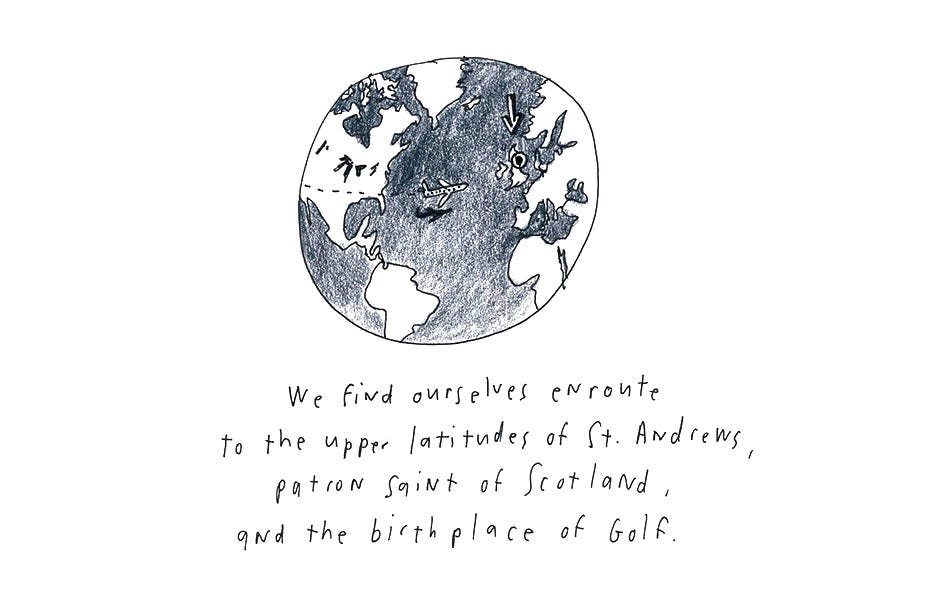 We find ourselves enroute
to the upper latitudes of St. Andrews,
patron saint of Scotland,
and the birthplace of Golf.